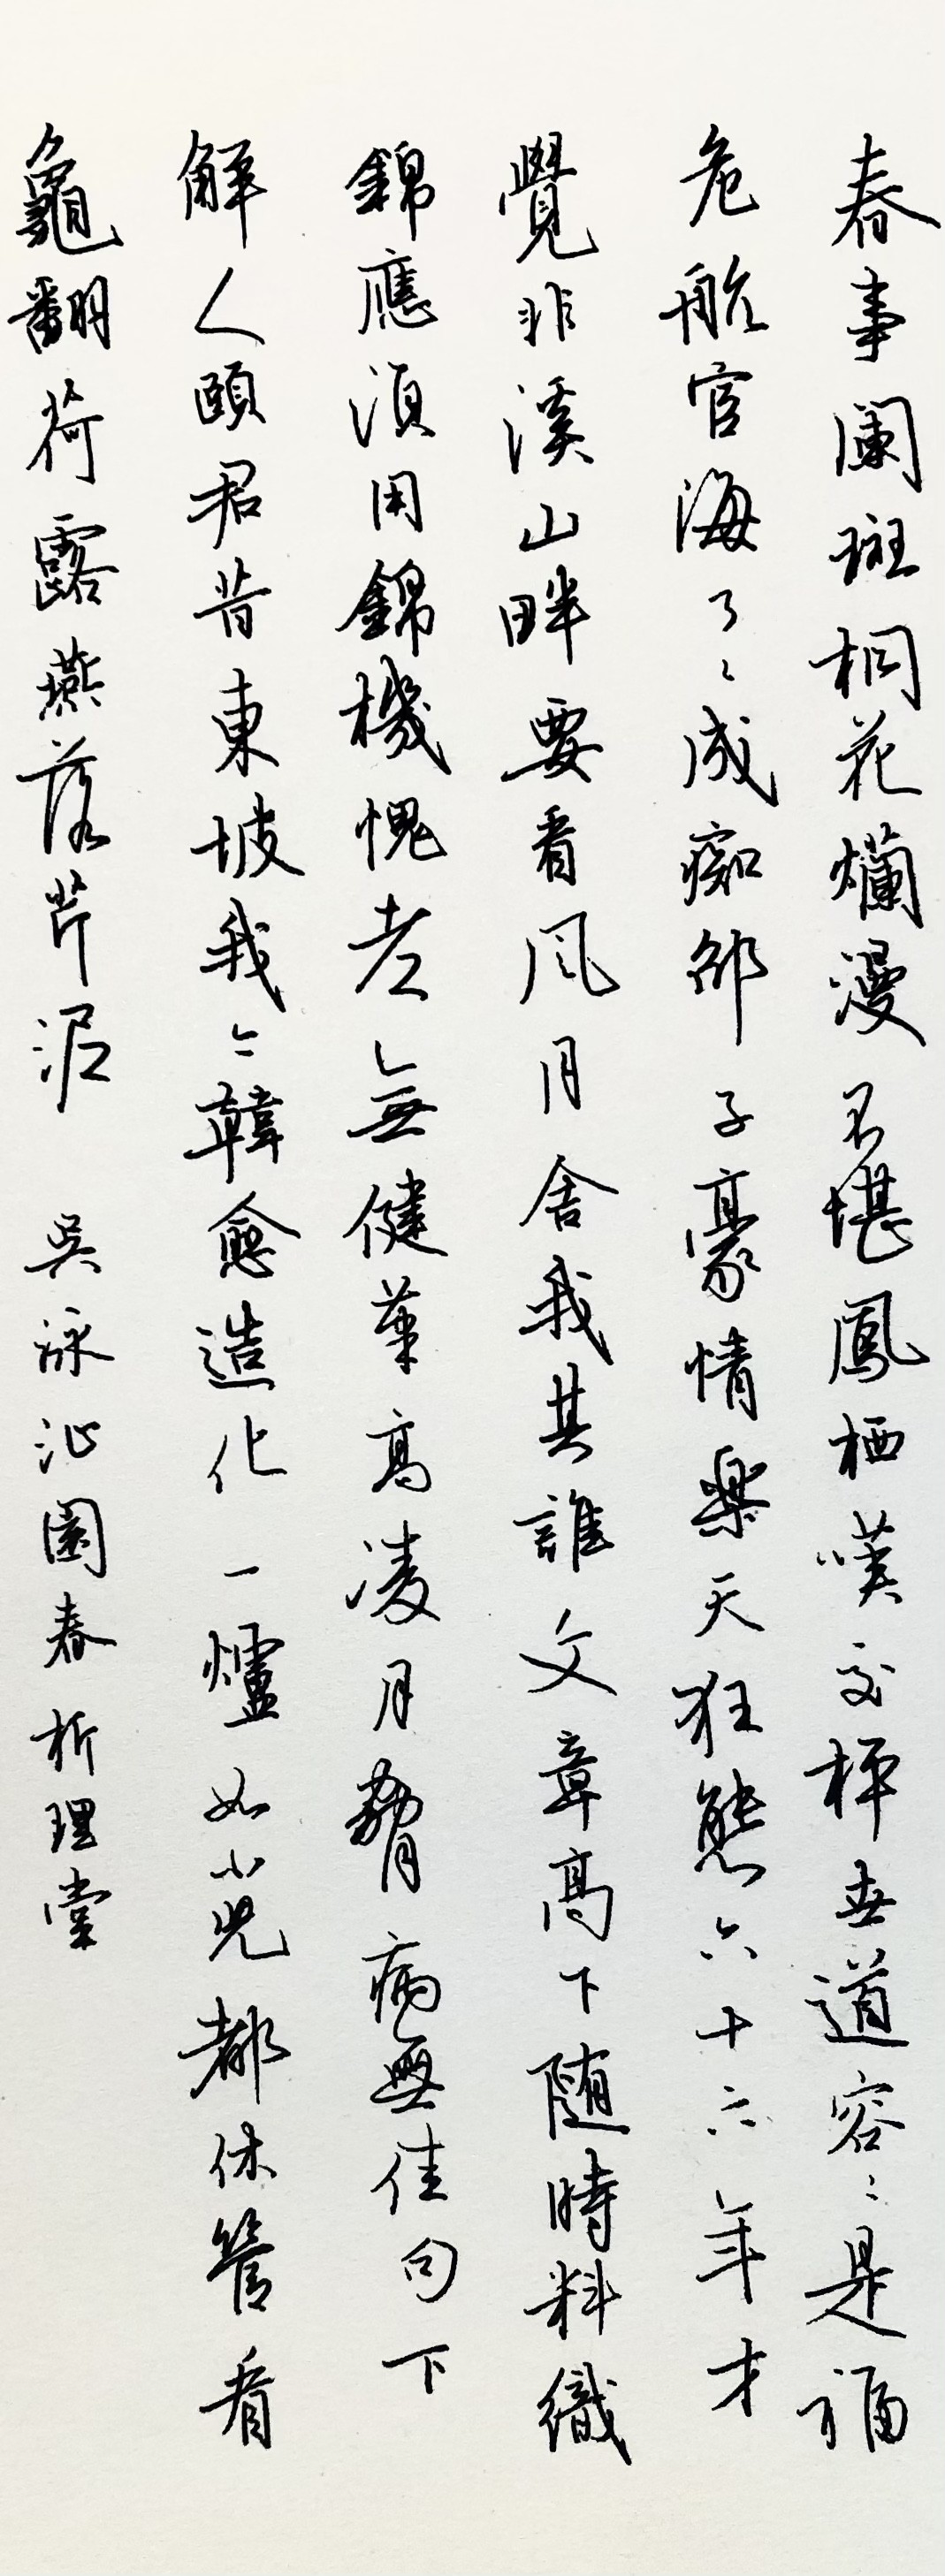 春事闌斑桐花爛漫不堪鳳栖嘆交枰世道容〻是福
危舩宦海了〻成痴邵子豪情樂天狂態六十六年才
覺非溪山畔要看風月舍我其誰文章高下随時料織
錦應須用錦機愧老無健筆高凌月脅病無佳句下
解人頤君昔東坡我〻韓愈造化一爐如小兒都休管看
龜翻荷露燕落芹泥 吳詠沁園春析理堂